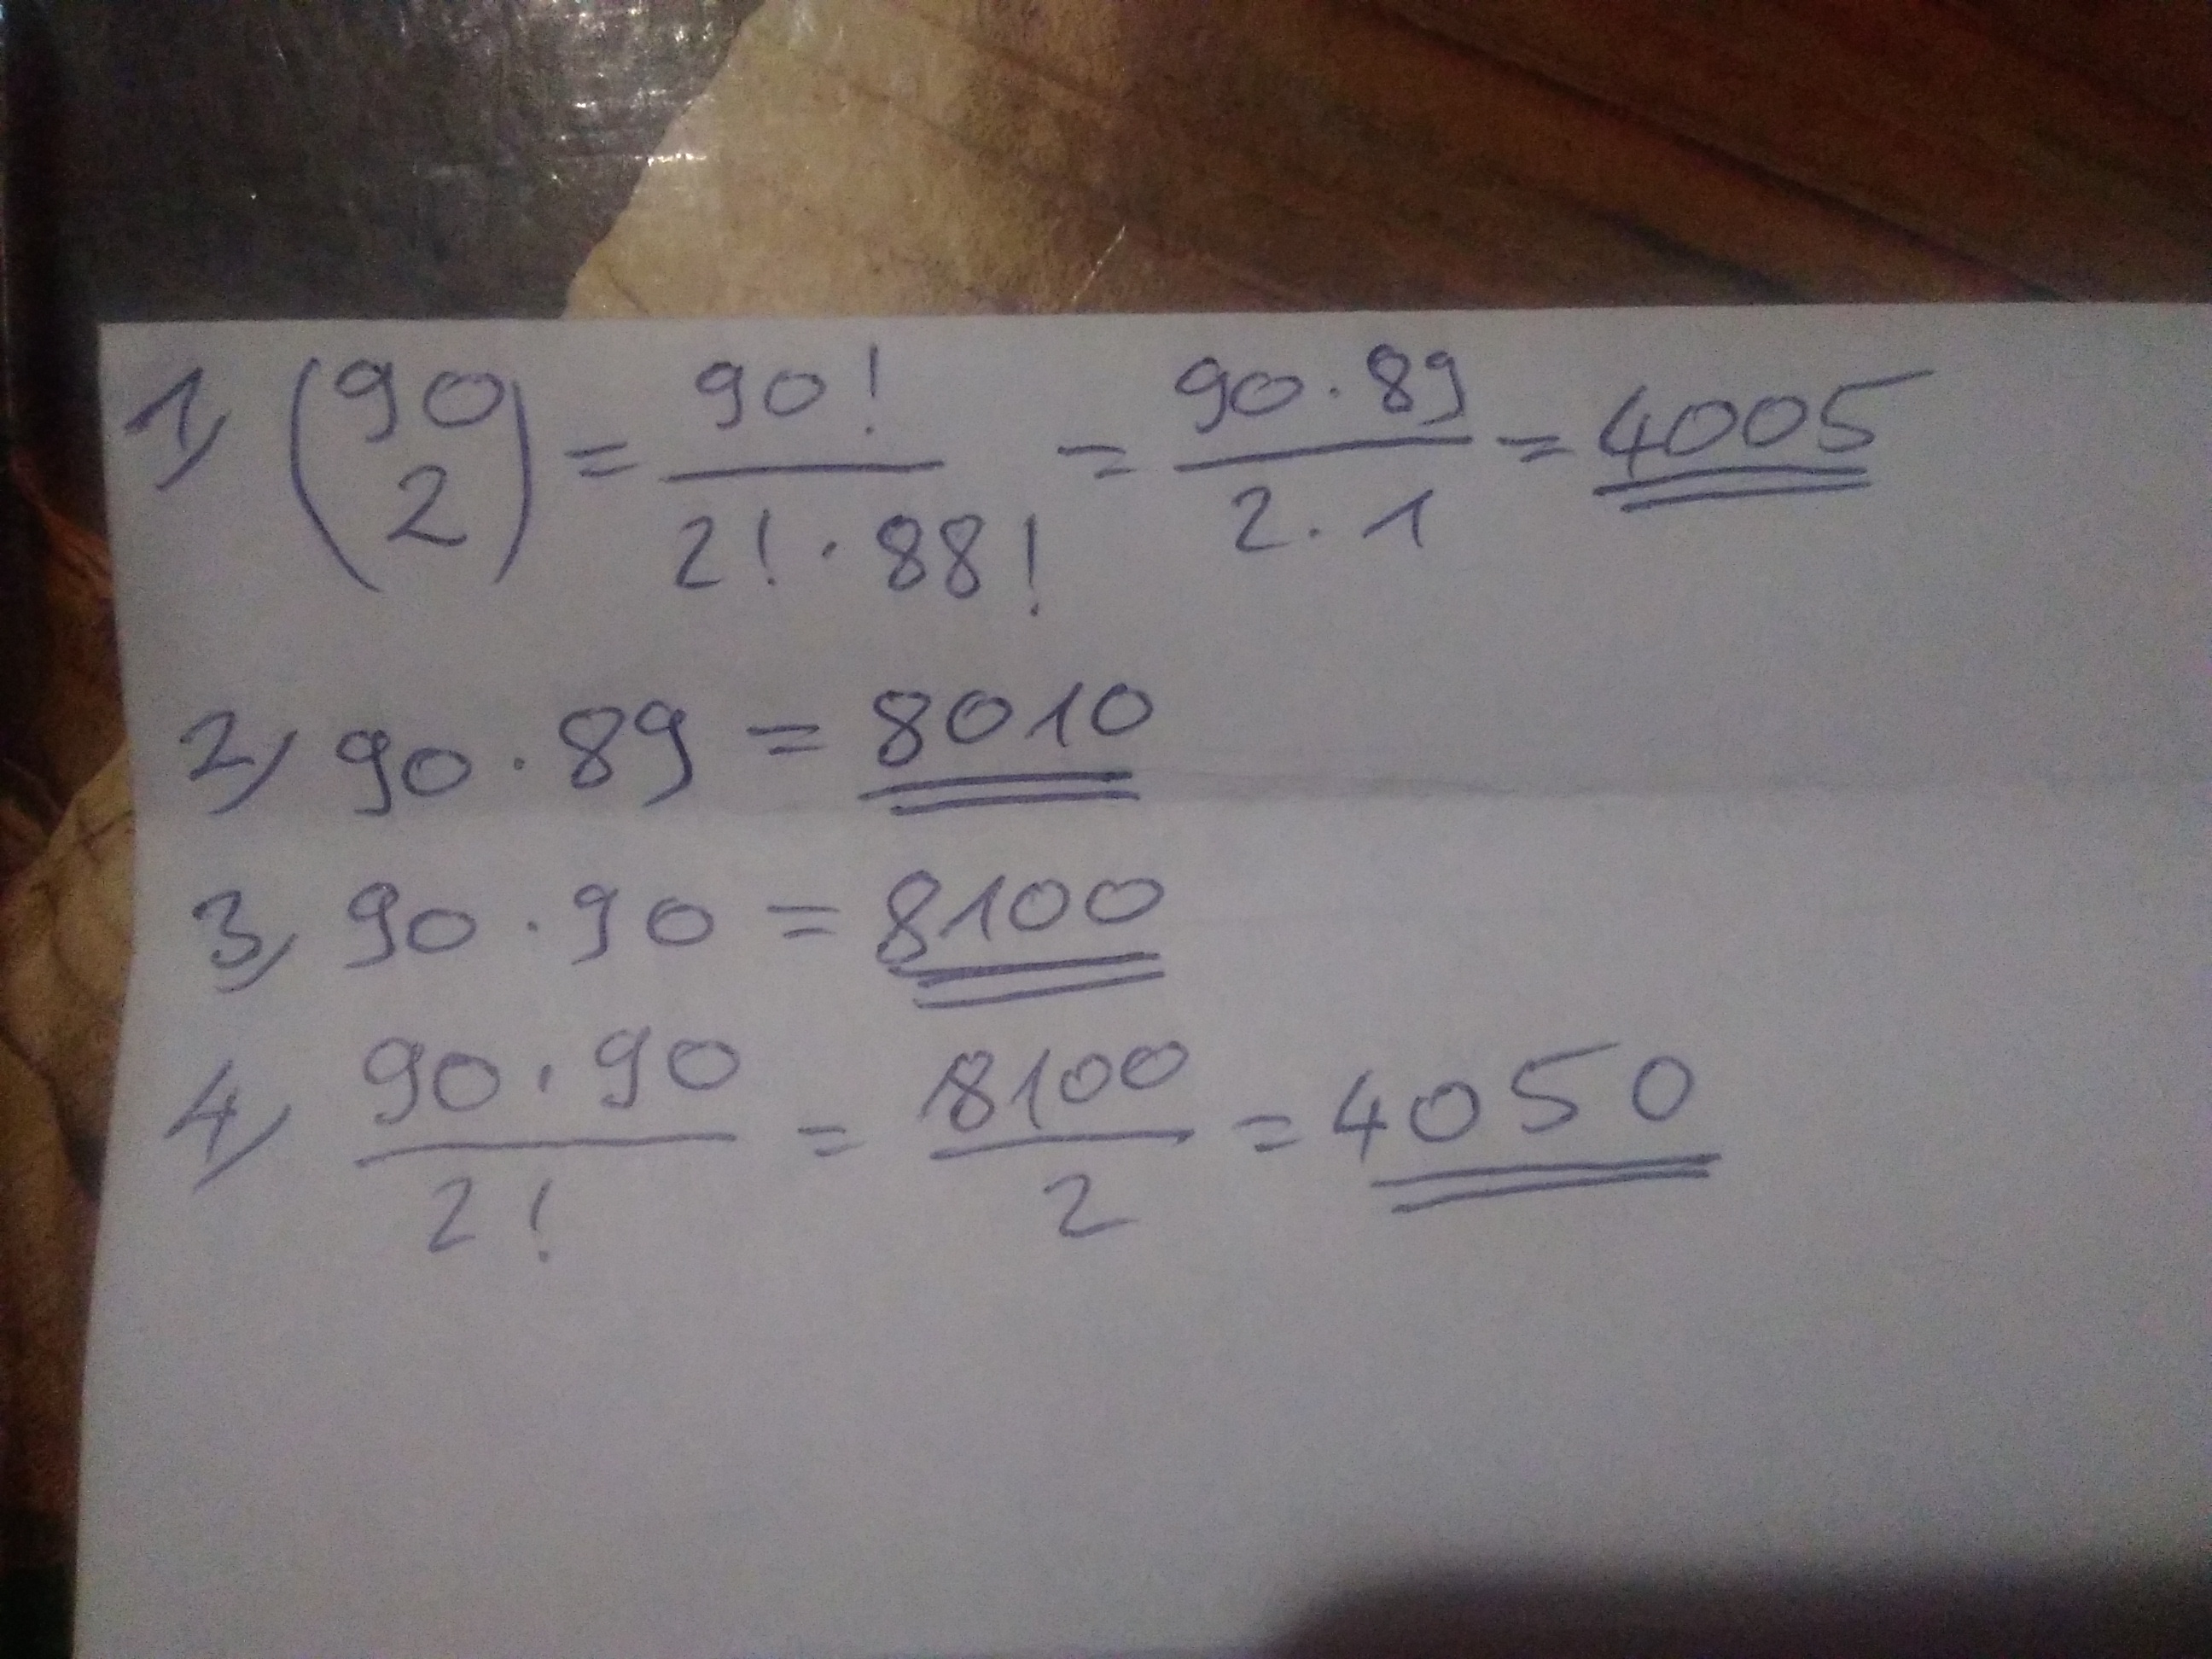 1, (90 2) = 90! / 2! · 88! = 90 · 89 / 2 · 1 = 4005
2, 90 · 89 = 8010
3, 90 · 90 = 8100
4, 90 · 90 / 2! = 8100 / 2 = 4050